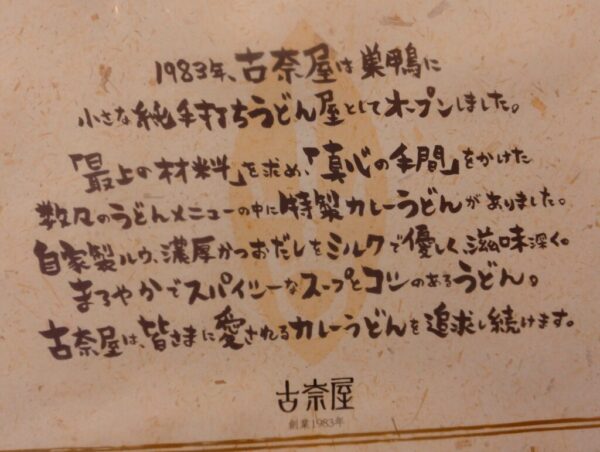 1983年、古奈屋は巣鴨に
小さな純手打ちうどん屋としてオープンしました。
「最上の材料」を求め、「真心の手間」をかけた
数々のうどんメニューの中に特製カレーうどんがありました。
自家製ルウ、濃厚かつおだしをミルクで優しく、滋味深く。
まろやかでスパイシーなスープとコシのあるうどん。
古奈屋は、皆さまに愛されるカレーうどんを追求し続けます。
古奈屋
創業1983年